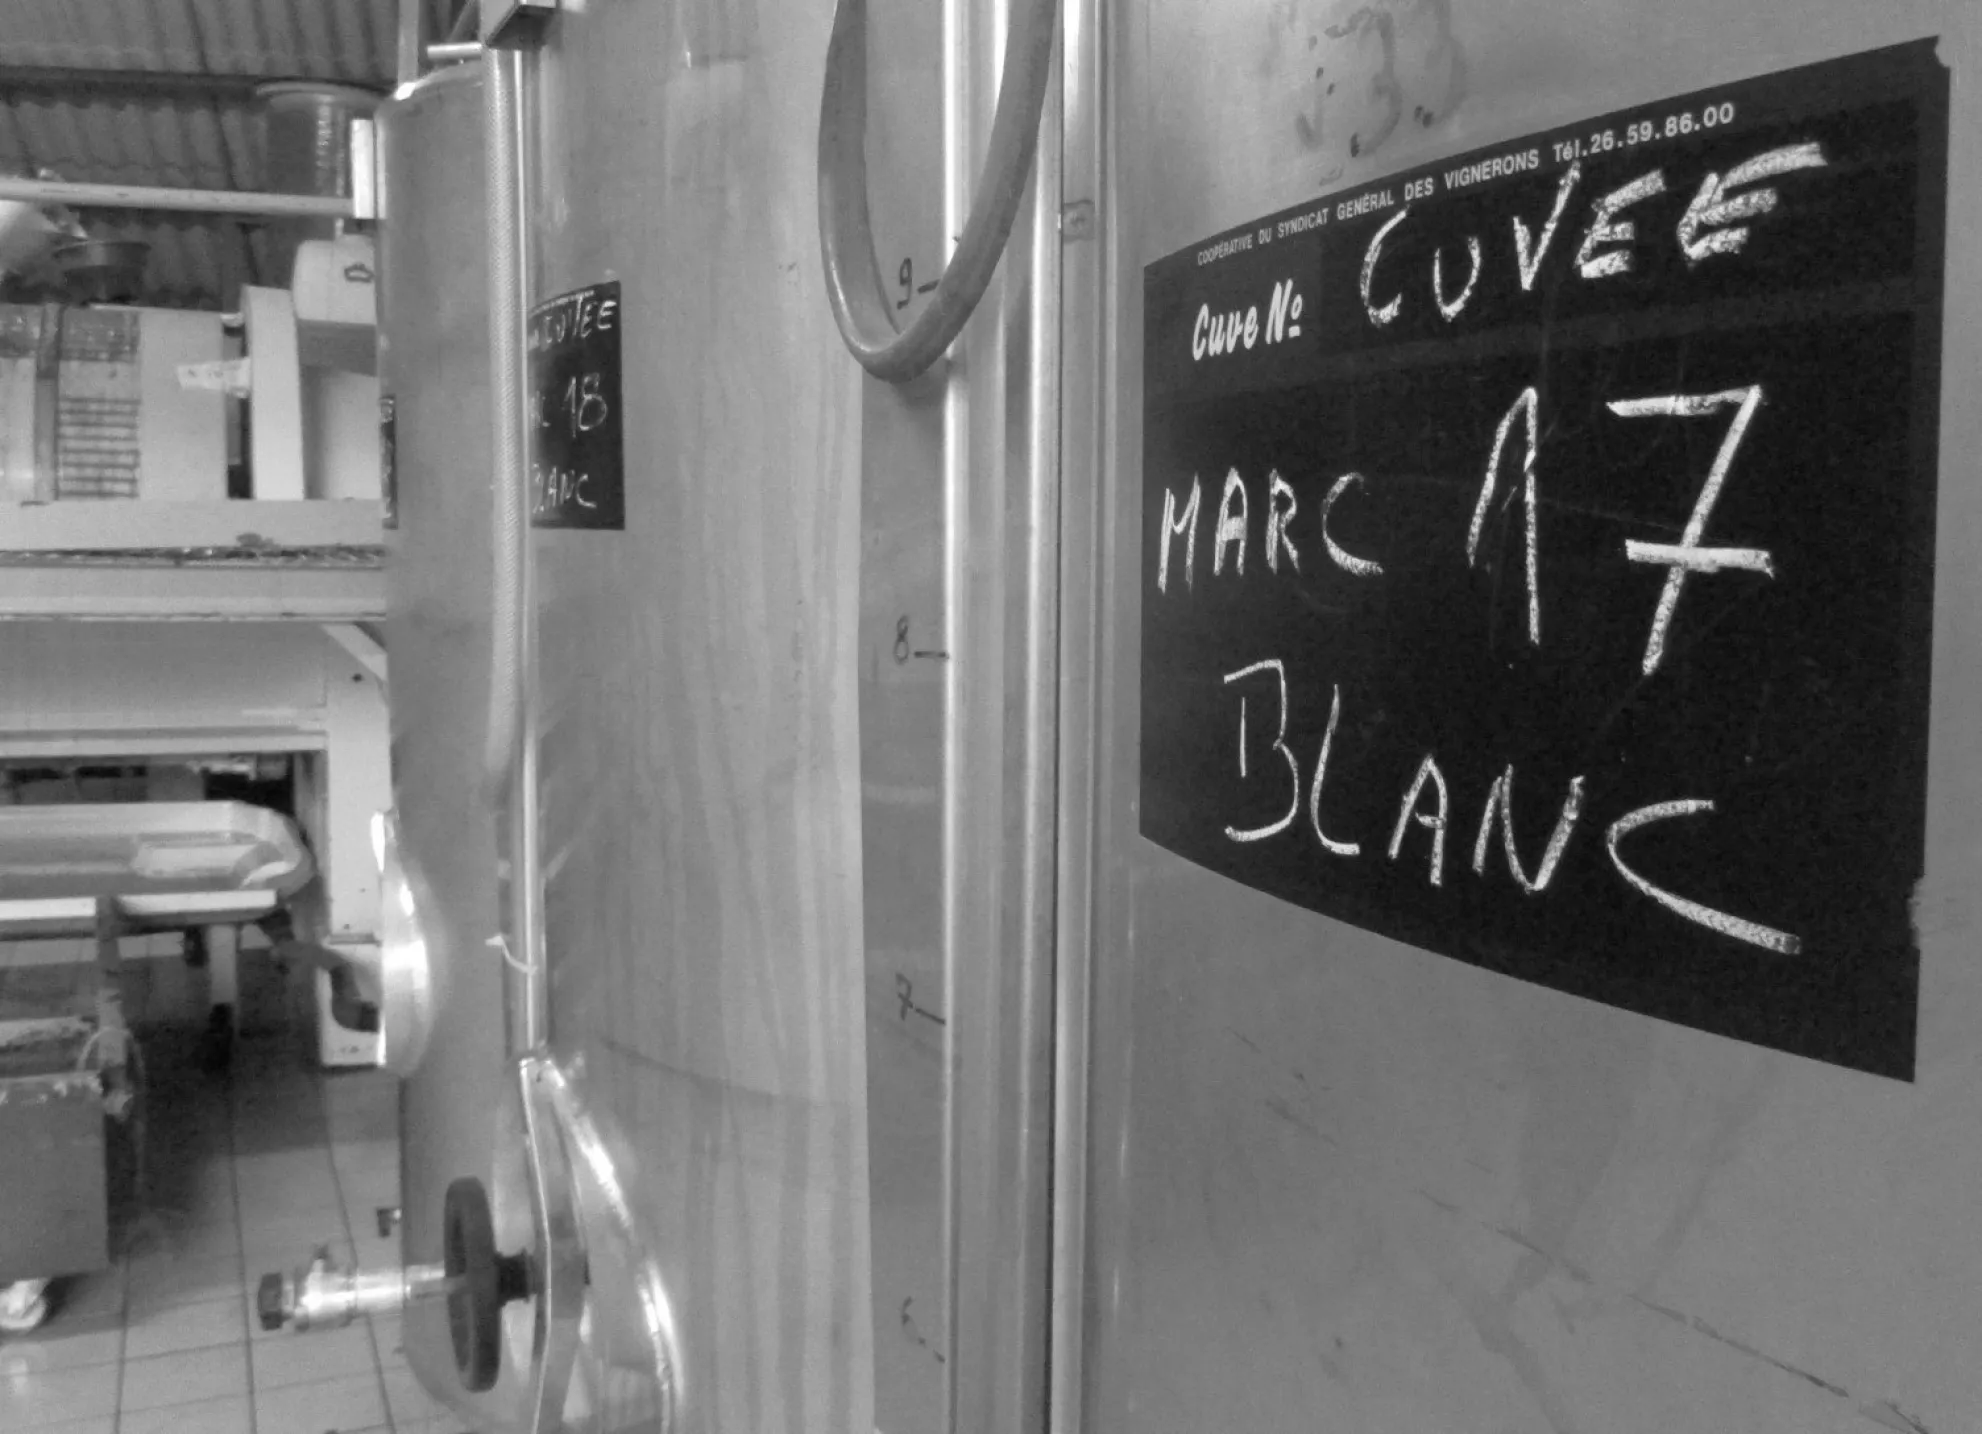 COOPÉRATIVE DU SYNDICAT GENÉRAL DES VIGNERONS Tél.26.59.86.00
Cuve Nº CUVEE
MARC 17
BLANC
CUVEE
18
BLANC
9
8
7
6